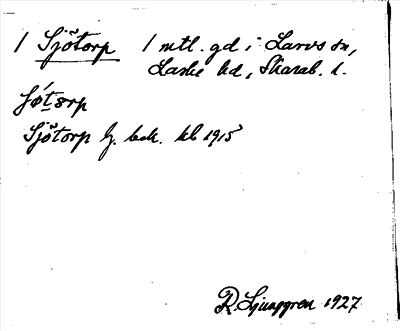 1 Sjötorp 1 mtl. gd i Larvs sn,
Laske hd, Skarab. l.
Sjötorp G. bek. kb 1915
R. Ljunggren 1927